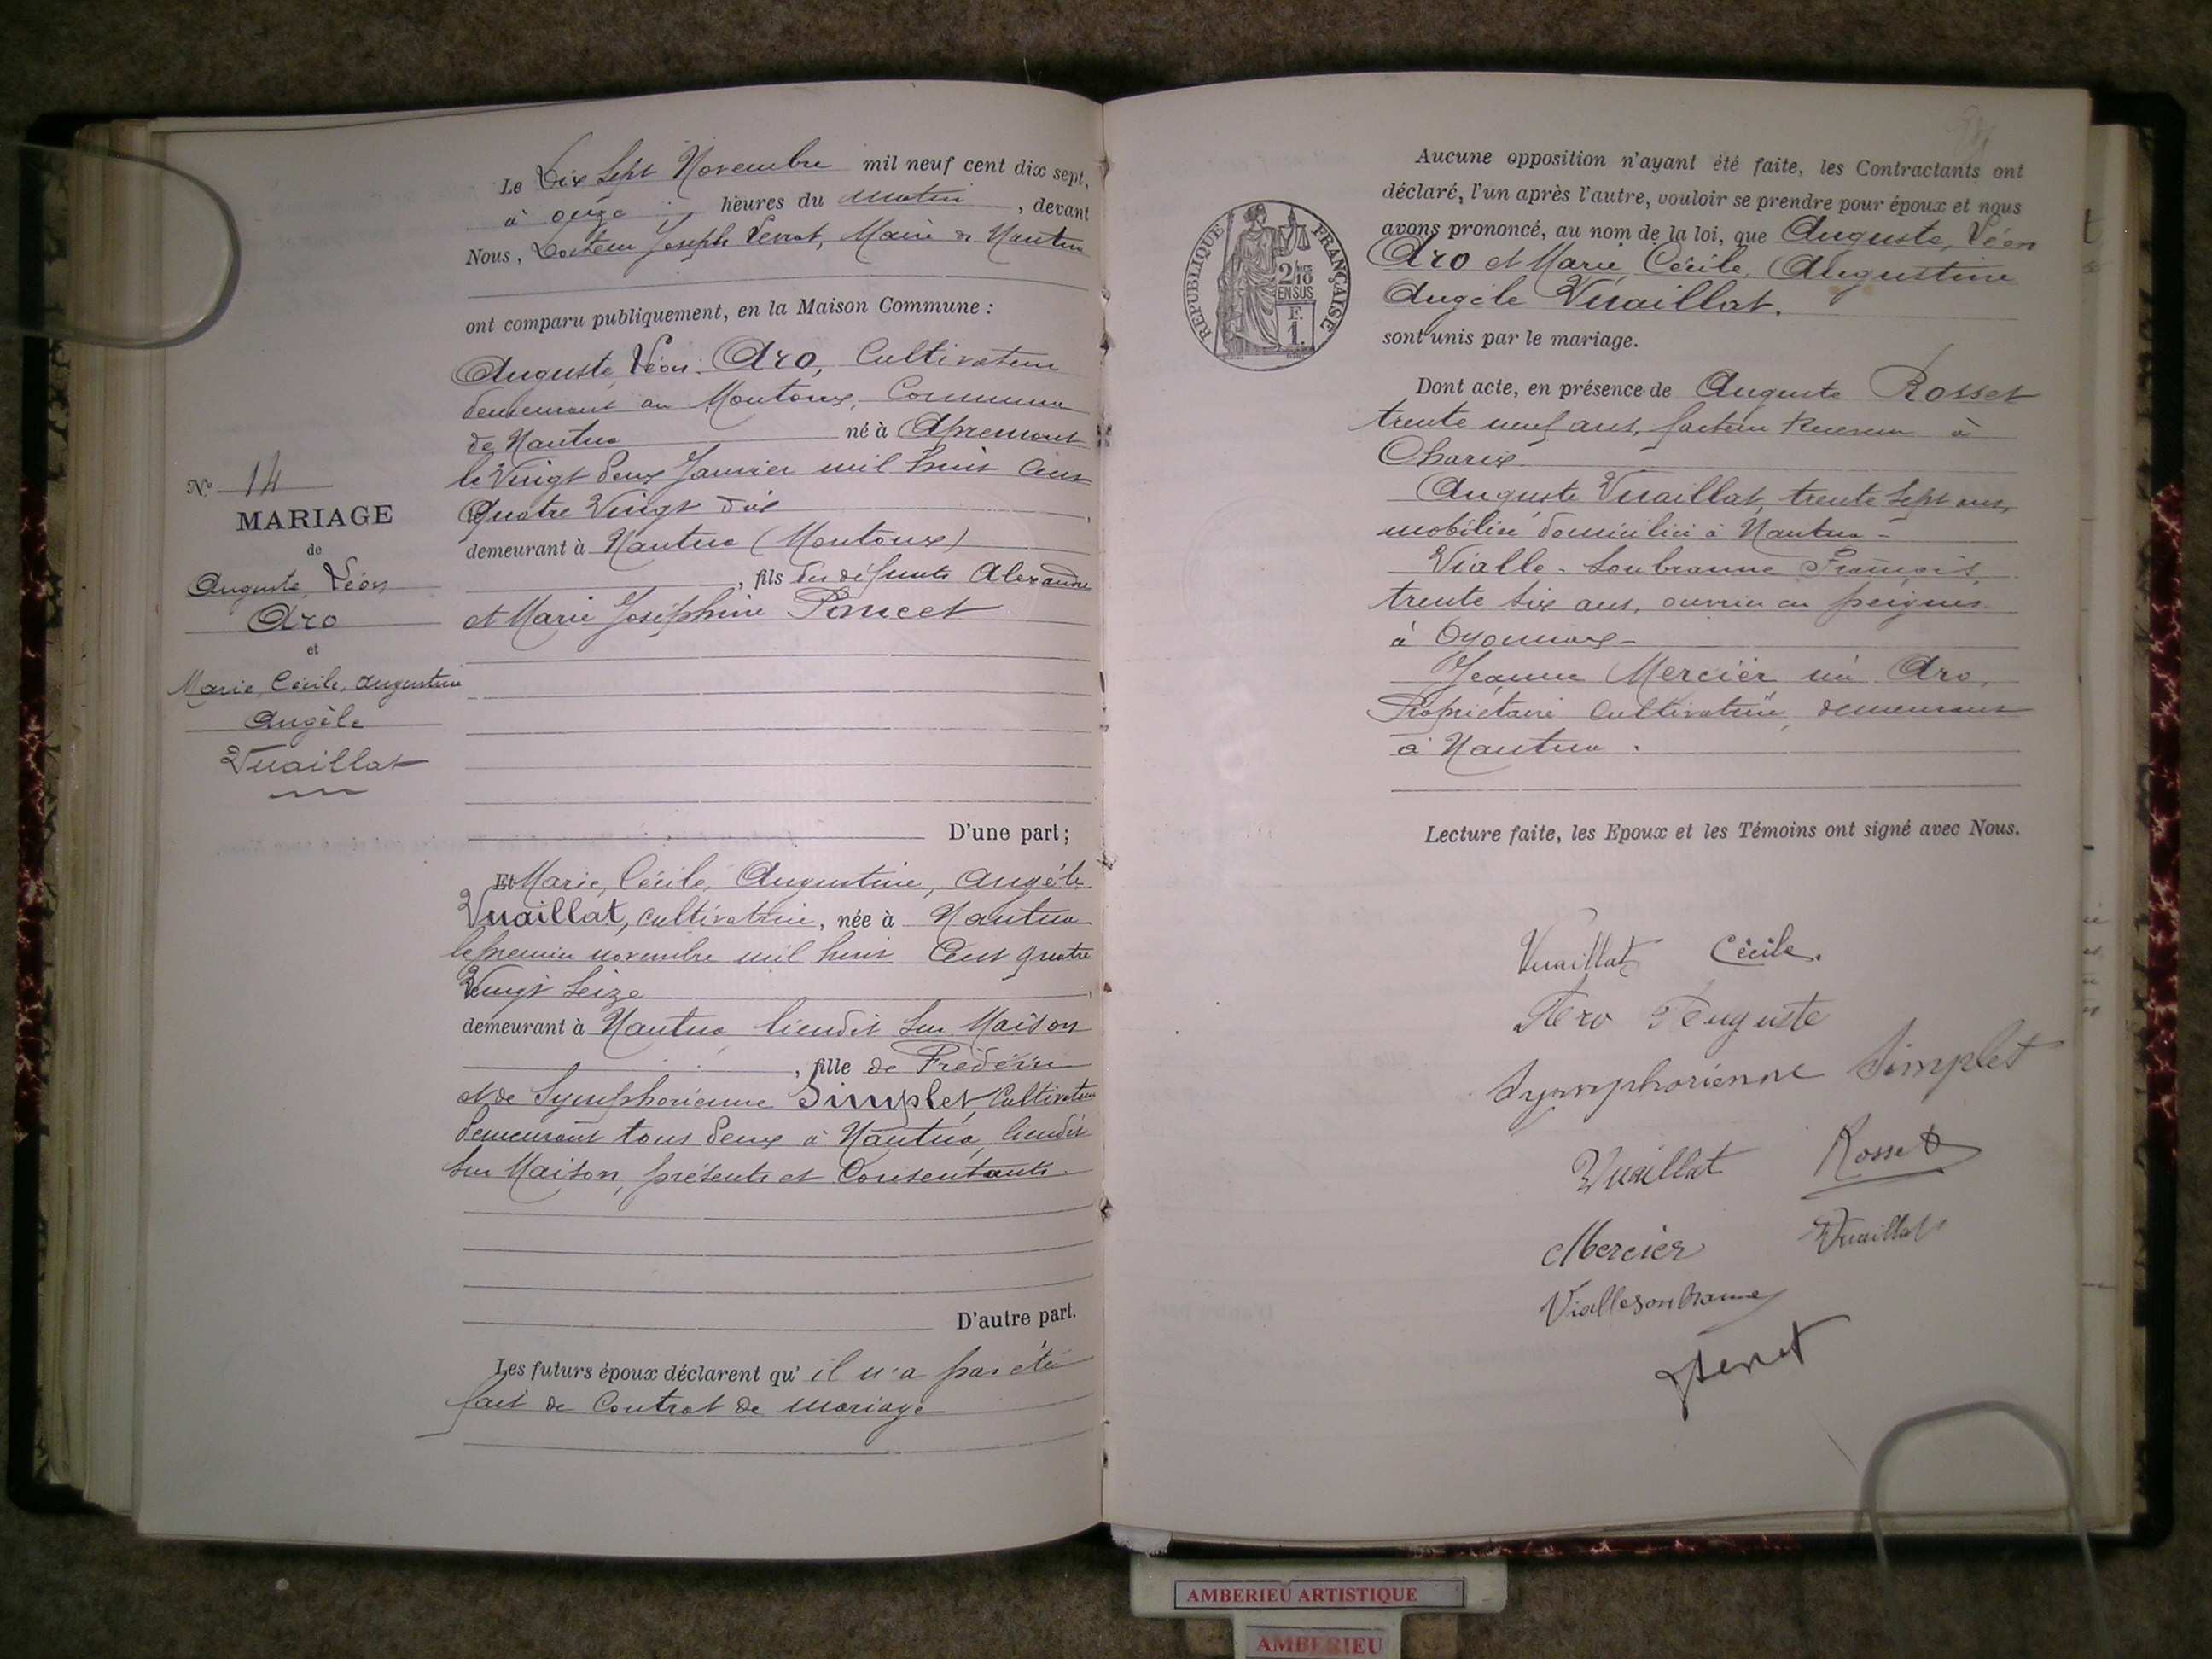 Le Dix Sept Novembre mil neuf cent dix sept,
à onze heures du matin, devant
Nous, Docteur Joseph Venot, Maire de Nantua
ont comparu publiquement, en la Maison Commune :
Auguste, Léon Aro, Cultivateur
demeurant au Montoux, Commune
de Nantua né à Apremont
le Vingt deux Janvier mil huit Cent
Quatre Vingt dix
demeurant à Nantua (Montoux)
, fils des défunts Alexandre
et Marie Joséphine Poncet
D'une part ;
No 14
MARIAGE
de
Auguste, Léon
Aro
et
Marie, Cécile, Augustine
Angèle
Vuaillat
Et Marie, Cécile, Augustine, Angèle
Vuaillat, cultivatrice, née à Nantua
le premier novembre mil huit Cent quatre
Vingt Seize
demeurant à Nantua, lieudit Sur Maison
, fille de Frédéric
et de Symphorienne Simplet, Cultivateurs
demeurant tous deux à Nantua, lieudit
Sur Maison, présents et Consentants.
D'autre part.
Les futurs époux déclarent qu'il n'a pas été
fait de Contrat de mariage
Aucune opposition n'ayant été faite, les Contractants ont
déclaré, l'un après l'autre, vouloir se prendre pour époux et nous
avons prononcé, au nom de la loi, que Auguste, Léon
Aro et Marie, Cécile, Augustine
Angèle Vuaillat.
sont unis par le mariage.
RÉPUBLIQUE FRANÇAISE
2/10
EN SUS
F.
1.
Dont acte, en présence de Auguste Rosset
trente neuf ans, facteur Receveur à
Charix.
Auguste Vuaillat, trente Sept ans,
mobilisé domicilié à Nantua -
Vialle - Soubranne François,
trente Six ans, ouvrier en peignes
à Oyonnax -
Jeanne Mercier née Aro,
Propriétaire Cultivatrice, demeurant
à Nantua.
Lecture faite, les Epoux et les Témoins ont signé avec Nous.
Vuaillat Cécile.
Aro Auguste
Symphorienne Simplet
Vuaillat Rosset
Mercier Vuaillat
Viallesoubranne
AMBERIEU ARTISTIQUE
AMBERIEU